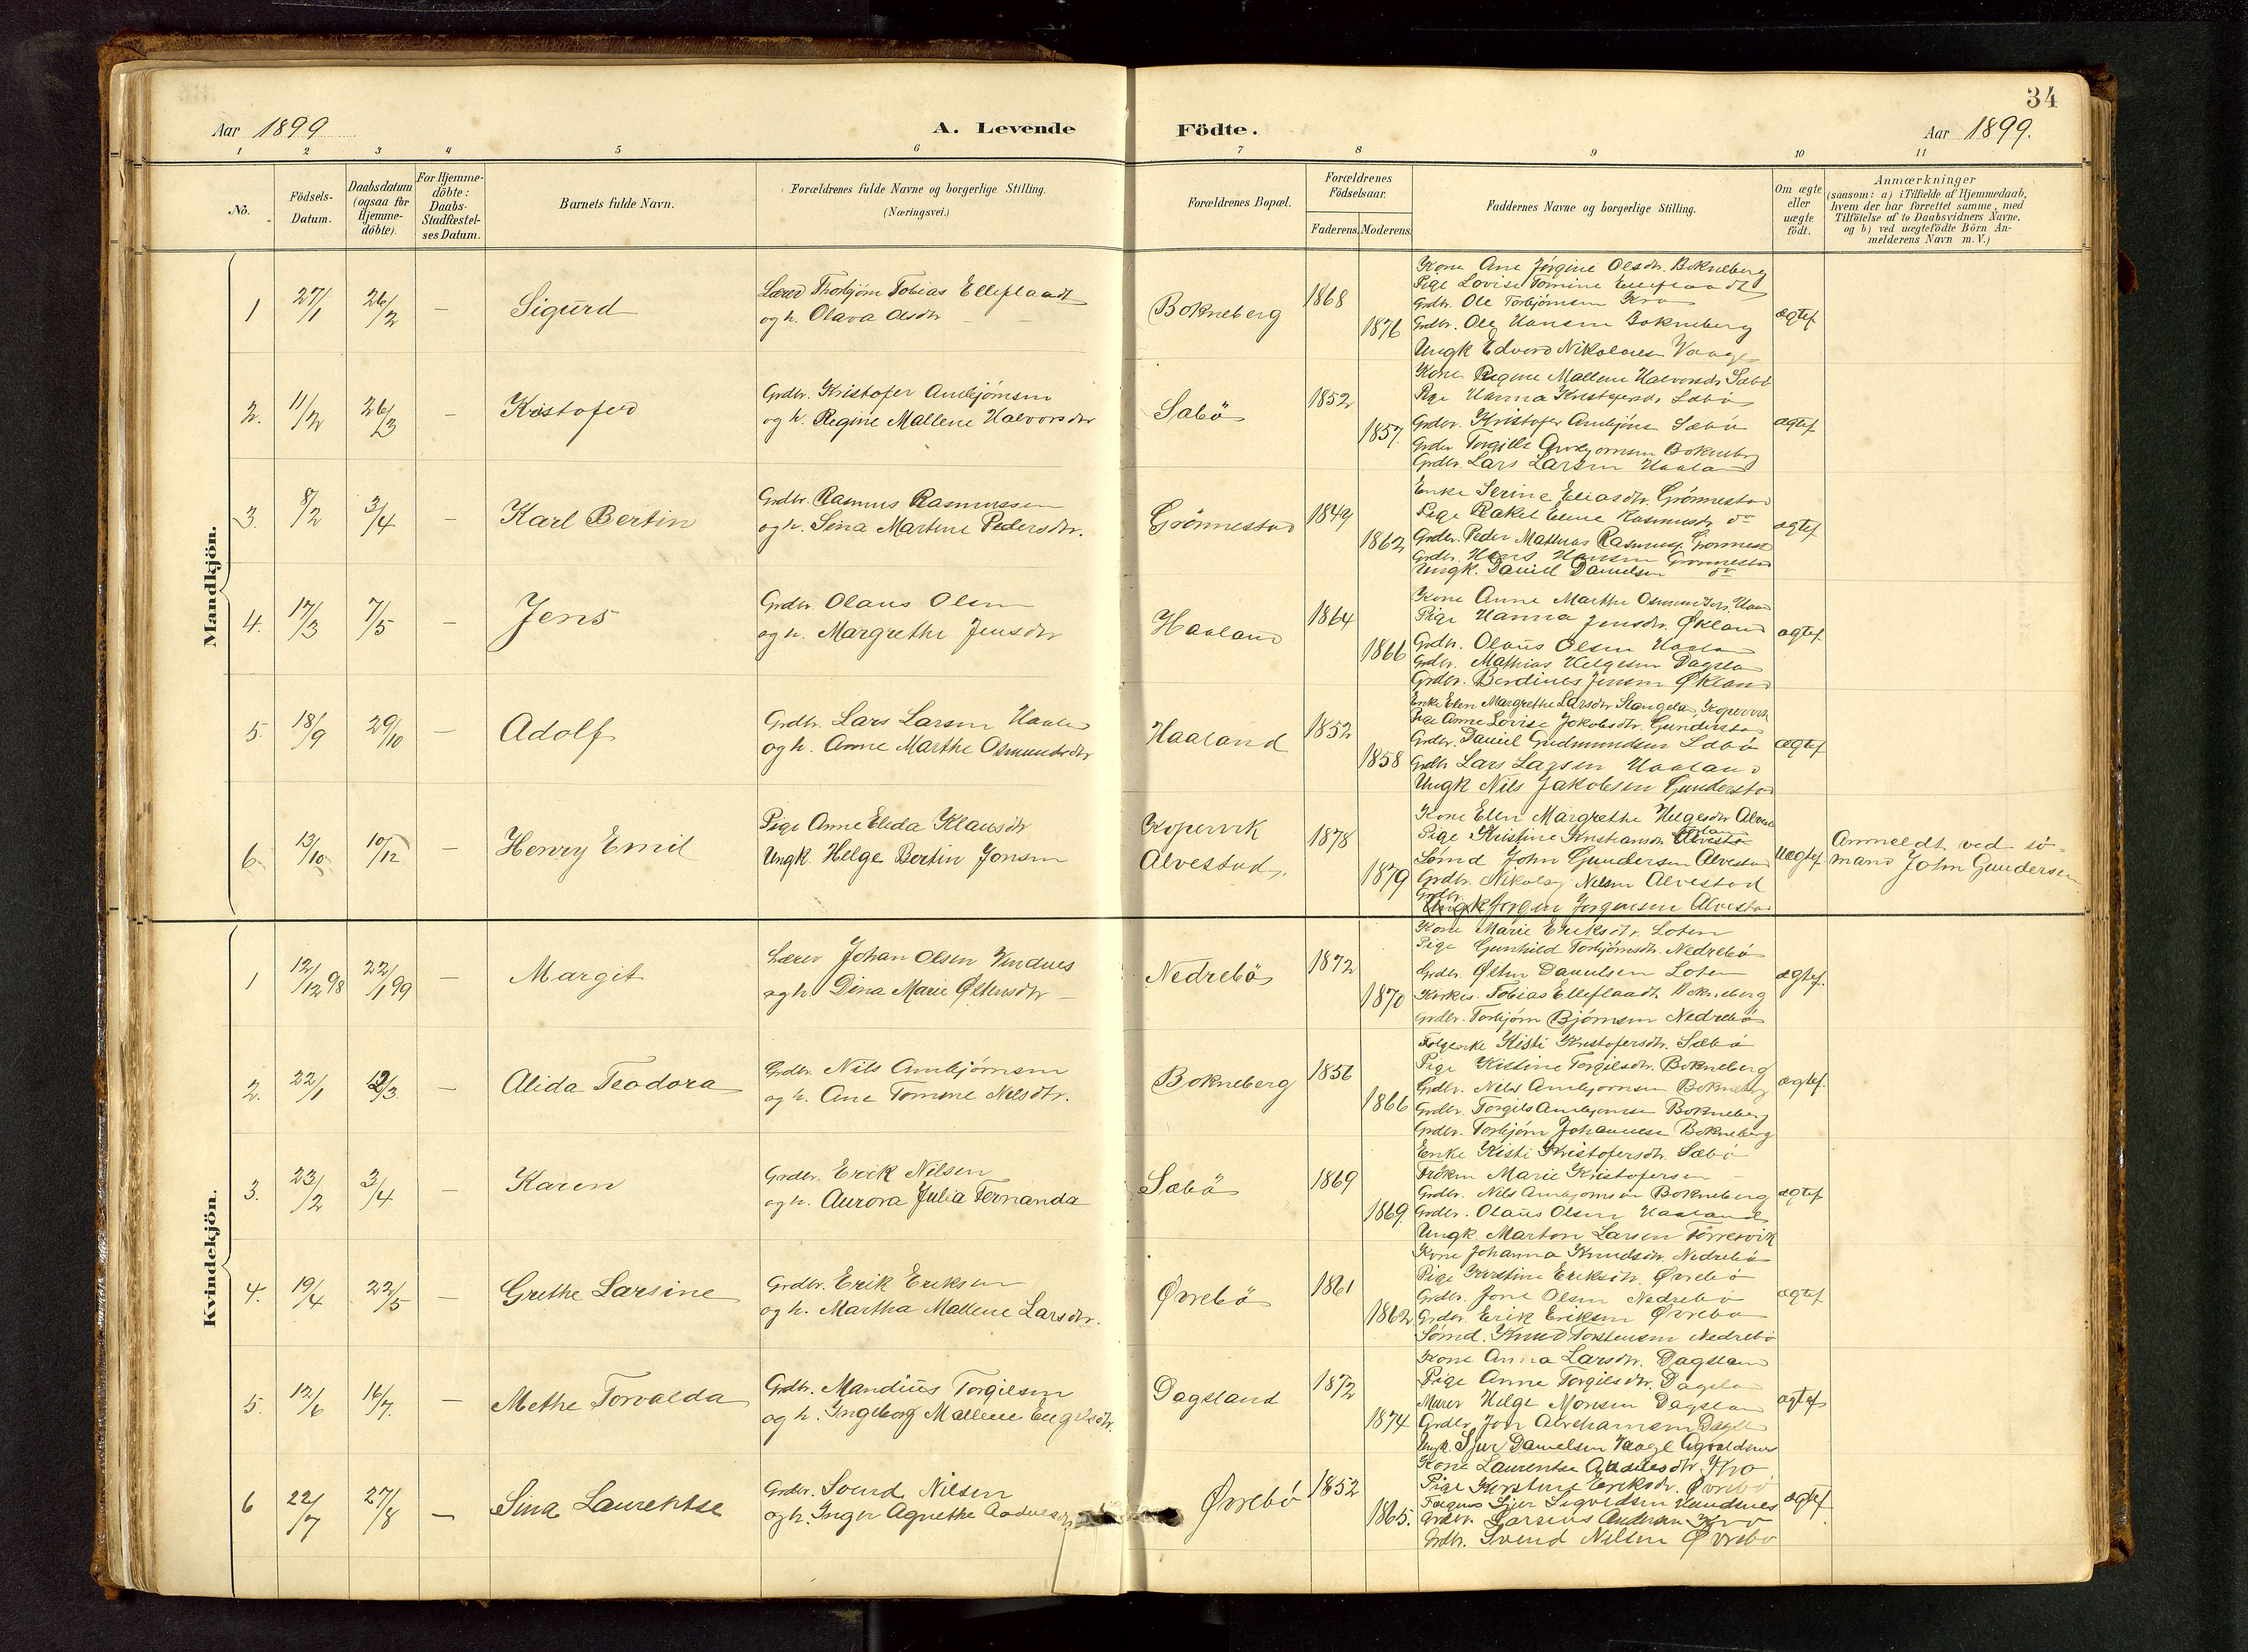 34
Aar 1899
A. Levende
Födte.
Aar 1899.
1 2 3 4 5 6 7 8 9 10 11
No.
Födsels-
Datum.
Daabsdatum
(ogsaa for
Hjemme-
döbte).
For Hjemme-
döbte:
Daabs-
Stadfæstel-
ses Datum.
Barnets fulde Navn.
Forældrenes fulde Navne og borgerlige Stilling.
(Næringsvei.)
Forældrenes Bopæl.
Forældrenes
Födselsaar.
Faderens. Moderens.
Faddernes Navne og borgerlige Stilling.
Om ægte
eller
uægte
födt.
Anmærkninger
(saasom: a) i Tilfælde af Hjemmedaab,
hvem der har forrettet samme, med
Tilföielse af to Daabsvidners Navne.
og b) ved uægtefödte Börn An-
melderens Navn m. V.)
Mandkjön.
1 27/1 26/2 — Sigurd
Lærer Thorbjørn Tobias Elleflaadt
og h. Olava Olsdtr
Bokneberg 1868 1876
Kone Ane Jørgine Olsdtr. Bokneberg
Pige Lovise Tomine Elleflaadt
Grdbr. Ole Torbjørnsen Kro
Grdbr. Ole Hansen Bokneberg
Ungk Edvard Nikolaisen Vaage
ægtef
2. 11/2 26/3 — Kristofer
Grdbr. Kristofer Ambjørnsen
og h. Regine Mallene Halvorsdtr
Sæbö 1852 1857.
Kone Regine Mallene Halvorsdtr Sæbö
Pige Hanna Kristofersdr Sæbö
Grdbr. Kristofer Ambjörns Sæbö
Grdbr Torgils Ambjornsen Bokneberg
Grdbr. Lars Larsen Haaland
ægtef
3. 8/2 3/4 — Karl Bertin
Grdbr. Rasmus Rasmussen
og h. Sina Martine Pedersdtr.
Grönnestad 1849 1862
Enke Serine Eliasdtr. Grönnestad
Pige Rakel Eline Rasmusdr do
Grdbr. Peder Mathias Rasmuss. Gronnest
Grdbr. Hans Hansen Gronnestad
Ungk. Daniel Danielsen do
ægtef
4. 17/3 7/5 — Jens
Grdbr. Olaus Olsen
og h. Margrethe Jensdtr
Haaland 1864 1866
Kone Anne Marthe Osmundsdr. Haal
Pige Hanna Jensdtr. Økland
Grdbr. Olaus Olsen Haaland
Grdbr. Mathias Helgesen Dagsland
Grdbr. Berdines Jensen Økland
ægtef
5. 18/9 29/10 — Adolf
Grdbr. Lars Larsen Haaland
og h. Anne Marthe Osmundsdtr
Haaland 1852 1858
Enke Elen Margrethe Larsdtr Stangeland, Kopervik
Pige Anne Lovise Jakobsdtr. Gunderstad
Grdbr. Daniel Gudmundsen Sæbö
Grdbr Lars Larsen Haaland
Ungk Nils Jakobsen Gunderstad
ægtef
6. 13/10 10/12 — Henry Emil
Pige Anne Elida Klausdtr
Ungk Helge Bertin Jonsen
Kopervik
Alvestad, 1878 1879
Kone Elen Margrethe Helgesdtr Alvest
Pige Kristine Kristiansdr
Sømd John Gundersen Alvestad
Grdbr. Nikolay Nilsen Alvestad
Grdbr. Jorgen Jorgensen Alvestad
Uægtef
Anmeldt ved sö-
mand John Gundersen
Kvindekjön.
1 12/12 98 22/1 99 — Margit
Lærer Johan Olsen Vindnes
og h. Dina Marie Østensdtr
Nedrebö 1872 1870
Kone Marie Eriksdtr. Loten
Pige Gunhild Torbjörnsdtr. Nedrebö
Grdbr. Østen Danielsen Loten
Kirkes. Tobias Elleflaadt Bokneberg
Grdbr. Torbjörn Bjørnsen Nedrebö
ægtef.
2. 22/1 12/3. — Alida Teodora
Grdbr. Nils Ambjørnsen
og h. Ane Tomine Nilsdtr.
Bokneberg 1856 1866
Folgenke Kisti Kristofersdtr. Sæbö
Pige Kistine Torgilsdtr. Bokneberg
Grdbr. Nils Ambjornsen Bokneberg
Grdbr. Torgils Ambjornsen Bokneberg
Grdbr. Torbjörn Johannesen Bokneberg
ægtef.
3. 23/2 3/4 — Karen
Grdbr. Erik Nilsen
og h. Aurora Julia Fernanda
Sæbö 1869 1869.
Enke Kisti Kristofersdtr. Sæbö
Fröken Marie Kristofersen —
Grdbr. Nils Ambjornsen Bokneberg
Grdbr. Olaus Olsen Haaland
Ungk. Marton Larsen Törresvik
ægtef
4. 19/4 22/5 — Grethe Larsine
Grdbr. Erik Eriksen
og h. Martha Mallene Larsdtr.
Øvrebö 1861 1862
Kone Johanna Knudsdtr. Nedrebö
Pige Kirstine Eriksdtr. Øvrebö
Grdbr. Jone Olsen Nedrebö
Grdbr. Erik Eriksen Øvrebö
Sømd. Knud Torstensen Nedrebö
ægtef
5. 12/6 16/7. — Methe Torvalda
Grdbr. Mandius Torgilsen
og h. Ingeborg Mallene Engelsdtr.
Dagsland 1872 1874
Kone Anna Larsdtr. Dagsland
Pige Anne Torgilsdtr. Dagsland
Murer Helge Monsen Dagsland
Grdbr. Jon Abrahamsen Dagsl
Ungk. Sjur Danielsen Vaage Agvaldsnes
ægtef
6 22/7 27/8 — Sina Laurentse
Grdbr. Svend Nilsen
og h. Inger Agnethe Aadnesdtr
Øvrebö 1852 1865.
Kone Laurentse Aadnesdtr. Kro
Pige Kirstine Eriksdtr. Øvrebö
Sjur Sigvedsen Hundsnes
Grdbr. Larsius Andersen Kro
Grdbr. Svend Nilsen Øvrebö
ægtef.